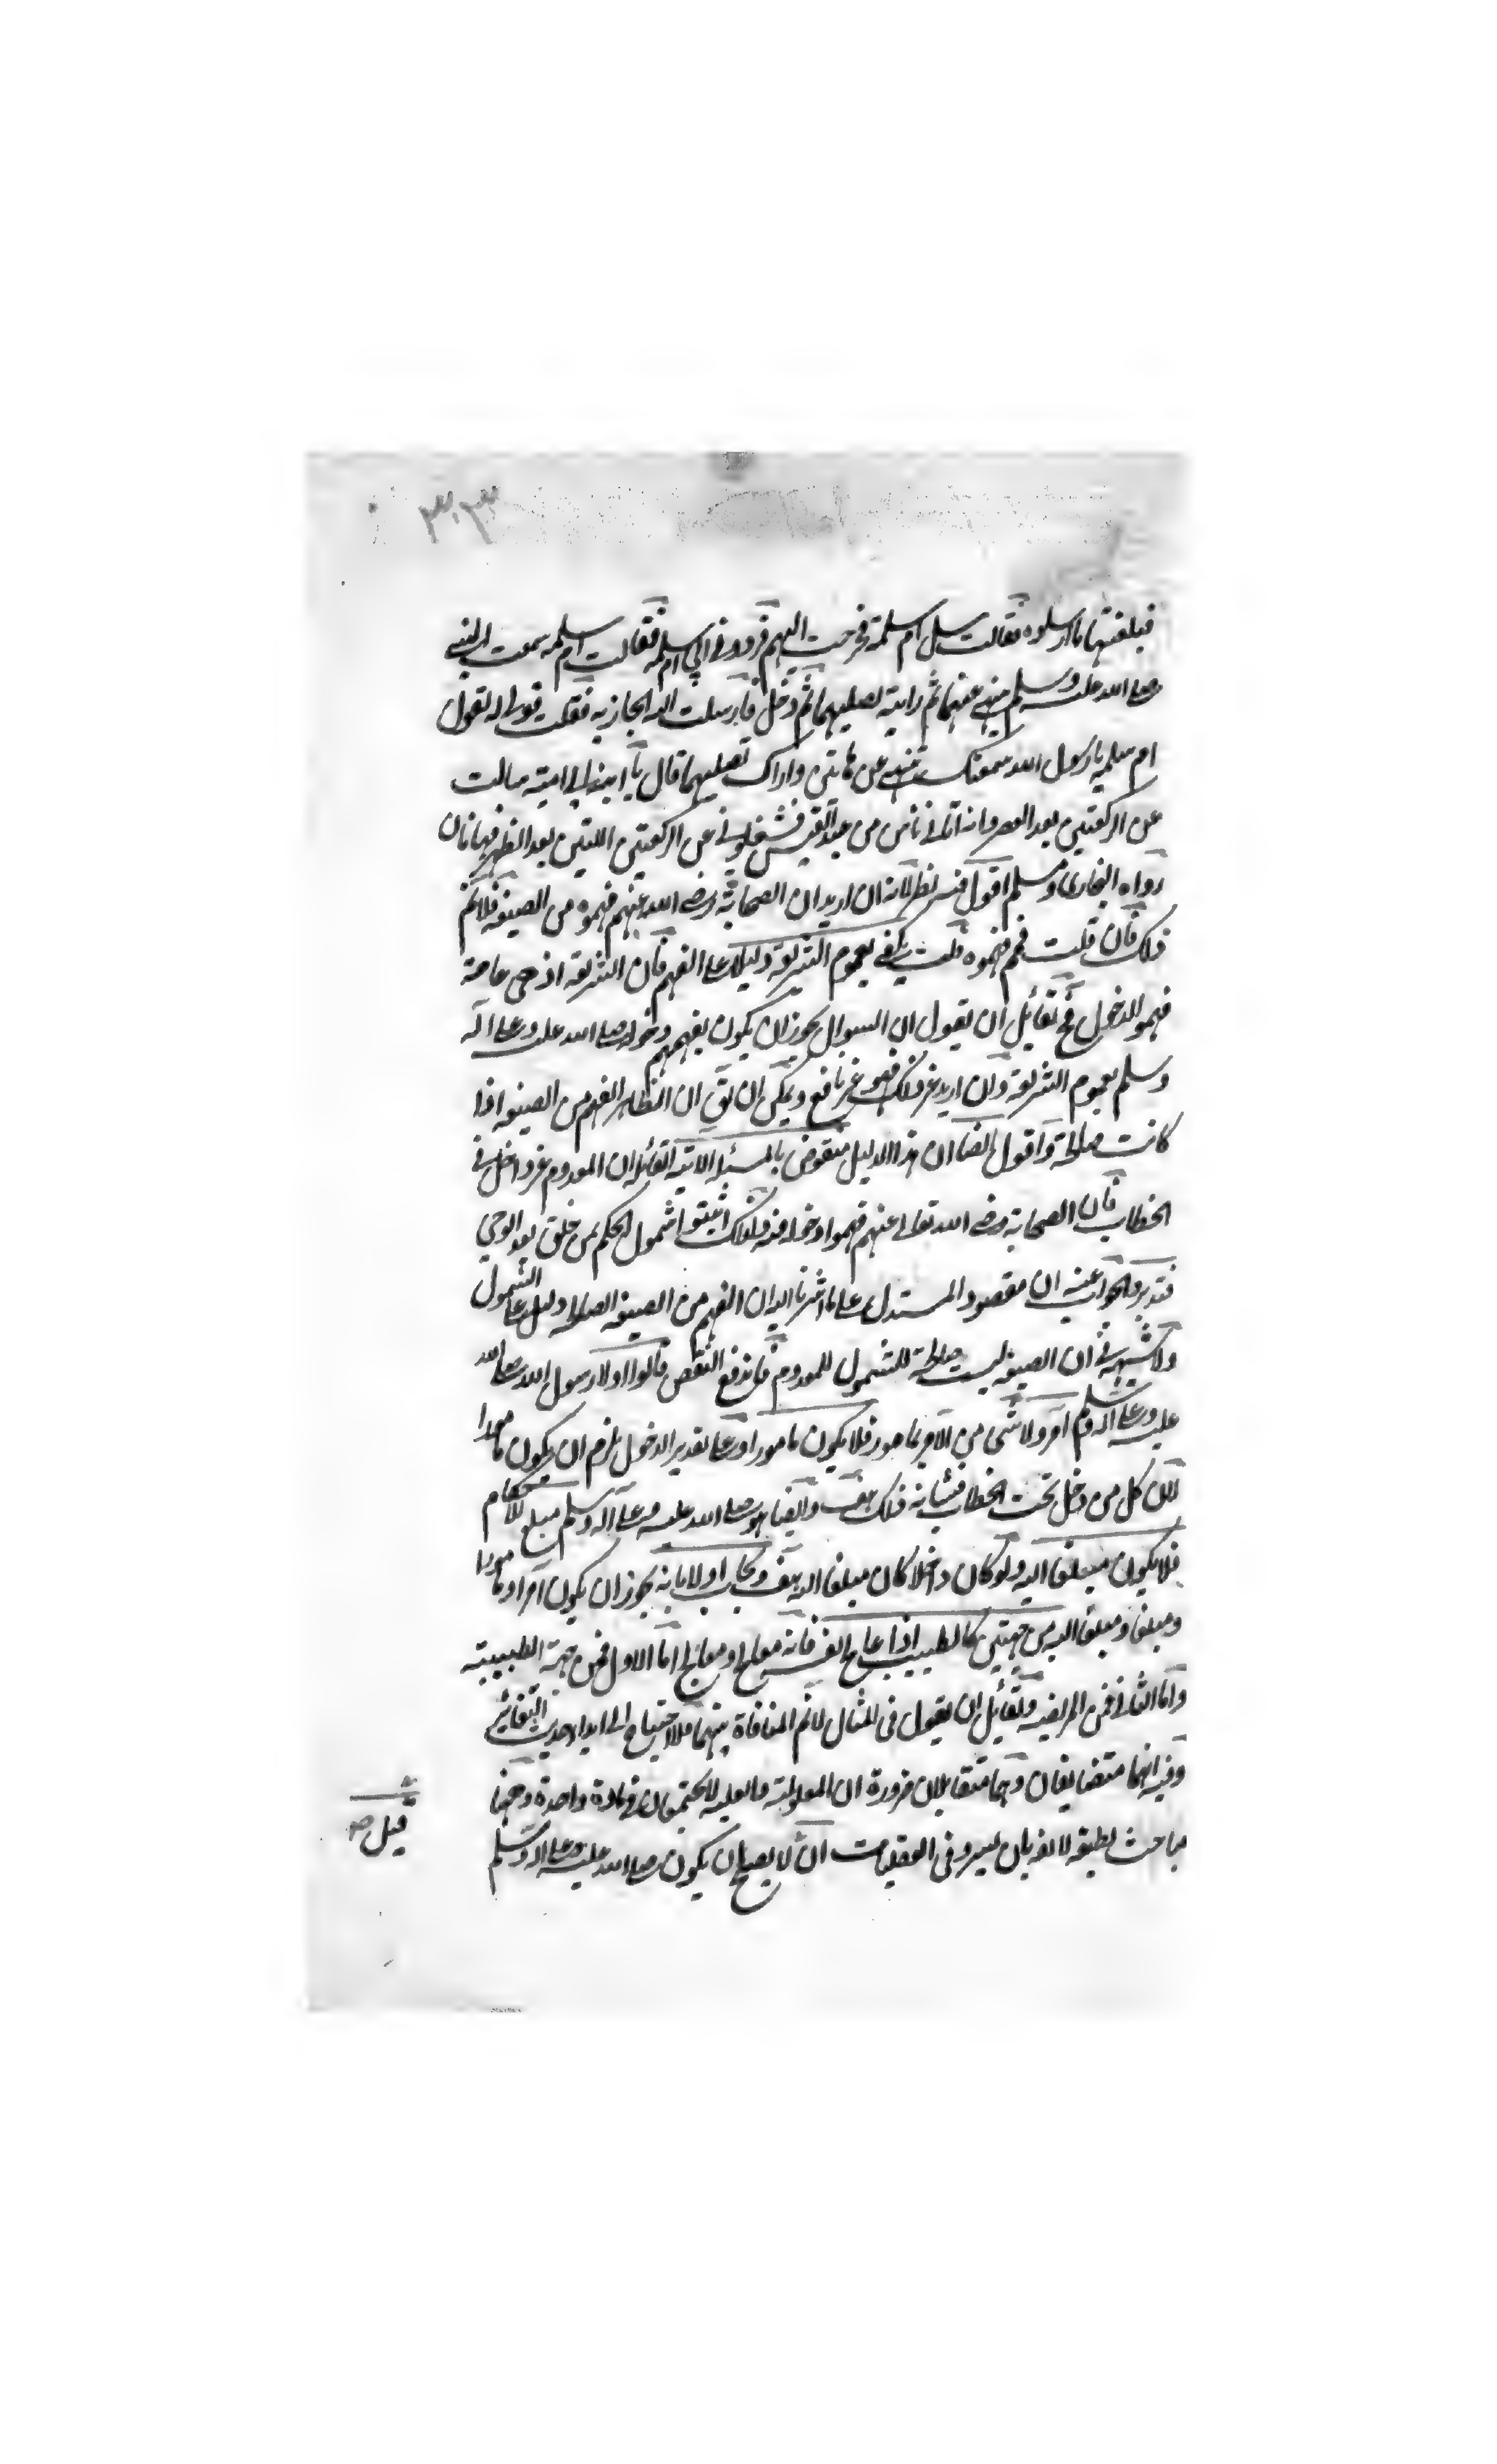 ٣٠٣
فبلغتها ما ارسلوه فقالت سل ام سلمة فخرجت اليهم فردوني الى ام سلمة فقالت ام سلمة سمعت النبي
صلى الله عليه وسلم ينهى عنهما ثم رايته يصليهما ثم دخل فارسلت اليه الجارية فقلت قولي له تقول
ام سلمة يا رسول الله سمعتك تنهى عن هاتين واراك تصليهما قال يا ابنة ابي امية سالت
عن الركعتين بعد العصر وانه اتاني ناس من عبد القيس فشغلوني عن الركعتين اللتين بعد الظهر فهما هاتان
رواه البخاري ومسلم اقول فيه نظر لانه ان اريد ان الصحابة رضي الله عنهم فهموه من الصيغة فلا نم
ذلك فان قلت فمم فهموه قلت يكفي بعموم الشريعة دليلا على الفهم فان الشريعة اذ هي عامة
فهموا الدخول فح لقائل ان يقول ان السوال يجوز ان يكون بفهمهم دخوله صلى الله عليه وعلى اله
وسلم بعموم الشريعة وان اريد غير ذلك فهو غير نافع ويمكن ان يق ان الظاهر الفهم من الصيغة اذا
كانت صالحة واقول ايضا ان هذا الدليل منقوض بالمسئلة الاتية القائلة ان المعدوم غير داخل في
الخطاب فان الصحابة رضي الله تعالى عنهم فهموا دخوله فيه ولذلك اثبتوا شمول الحكم لمن خلق بعد الوحي
فتدبر والجواب عنه ان مقصود المستدل على ما اشرنا اليه ان الفهم من الصيغة الصالحة دليل على الشمول
ولا شبهة في ان الصيغة ليست صالحة للشمول للمعدوم فاندفع النقض قالوا اولا رسول الله صلى الله
عليه وعلى اله وسلم آمر ولا شئ من الآمر بمامور فلا يكون مامورا وعلى تقدير الدخول يلزم ان يكون مامورا
لان كل من دخل تحت الخطاب فشانه ذلك هف وايضا هو صلى الله عليه وعلى آله وسلم مبلغ للاحكام
فلا يكون مبلغا اليه ولو كان داخلا كان مبلغا اليه هف ويجاب اولا بانه يجوز ان يكون آمرا ومامورا
ومبلغا ومبلغا اليه من جهتين كالطبيب اذا عالج نفسه فانه معالج ومعالج اما الاول فمن جهة الطبيبية
واما الثاني فمن المريضية ولقائل ان يقول في المثال لا نم المنافاة بينهما فلا احتياج الى ابداء حديث التغاير
وفيه انهما متضايفان وهما متقابلان ضرورة ان المعلولية والعلية لا يجتمعان في مادة واحدة وههنا
مباحث لطيفة لا نعرفان ليسر وفي العقليات ان لا يصلح ان يكون صلى الله عليه وعلى اله وسلم
قيل